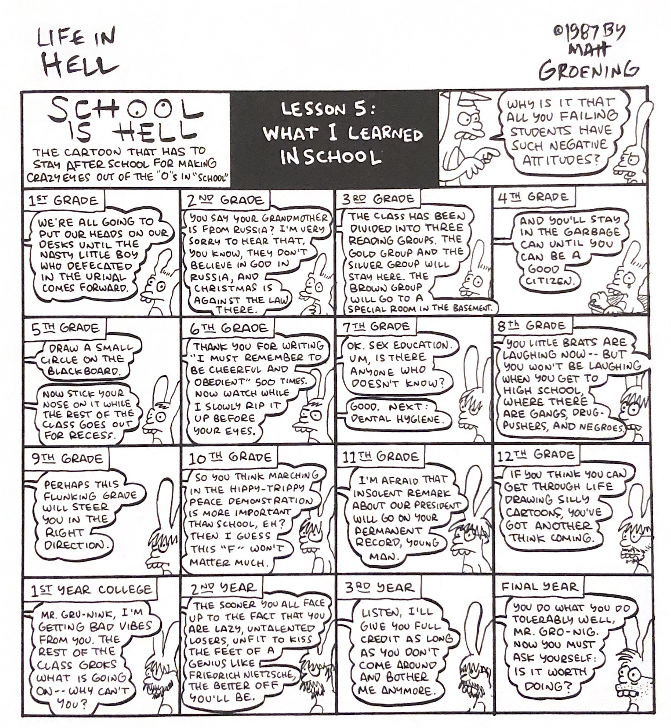 LIFE IN
HELL
©1987 BY
MATT
GROENING
SCHOOL
IS HELL
THE CARTOON THAT HAS TO
STAY AFTER SCHOOL FOR MAKING
CRAZY EYES OUT OF THE "O'S IN "SCHOOL"
LESSON 5:
WHAT I LEARNED
IN SCHOOL
WHY IS IT THAT
ALL YOU FAILING
STUDENTS HAVE
SUCH NEGATIVE
ATTITUDES?
1ST GRADE
WE'RE ALL GOING TO
PUT OUR HEADS ON OUR
DESKS UNTIL THE
NASTY LITTLE BOY
WHO DEFECATED
IN THE URINAL
COMES FORWARD.
2ND GRADE
YOU SAY YOUR GRANDMOTHER
IS FROM RUSSIA? I'M VERY
SORRY TO HEAR THAT.
YOU KNOW, THEY DON'T
BELIEVE IN GOD IN
RUSSIA, AND
CHRISTMAS IS
AGAINST THE LAW
THERE.
3RD GRADE
THE CLASS HAS BEEN
DIVIDED INTO THREE
READING GROUPS. THE
GOLD GROUP AND THE
SILVER GROUP WILL
STAY HERE. THE
BROWN GROUP
WILL GO TO A
SPECIAL ROOM IN THE BASEMENT.
4TH GRADE
AND YOU'LL STAY
IN THE GARBAGE
CAN UNTIL YOU
CAN BE A
GOOD
CITIZEN.
5TH GRADE
DRAW A SMALL
CIRCLE ON THE
BLACKBOARD.
NOW STICK YOUR
NOSE ON IT WHILE
THE REST OF THE
CLASS GOES OUT
FOR RECESS.
6TH GRADE
THANK YOU FOR WRITING
"I MUST REMEMBER TO
BE CHEERFUL AND
OBEDIENT" 500 TIMES.
NOW WATCH WHILE
I SLOWLY RIP IT
UP BEFORE
YOUR EYES.
7TH GRADE
OK. SEX EDUCATION.
UM, IS THERE
ANYONE WHO
DOESN'T KNOW?
GOOD. NEXT:
DENTAL HYGIENE.
8TH GRADE
YOU LITTLE BRATS ARE
LAUGHING NOW-- BUT
YOU WON'T BE LAUGHING
WHEN YOU GET TO
HIGH SCHOOL,
WHERE THERE
ARE GANGS, DRUG-
PUSHERS, AND NEGROES.
9TH GRADE
PERHAPS THIS
FLUNKING GRADE
WILL STEER
YOU IN THE
RIGHT
DIRECTION.
10TH GRADE
SO YOU THINK MARCHING
IN THE HIPPY-TRIPPY
PEACE DEMONSTRATION
IS MORE IMPORTANT
THAN SCHOOL, EH?
THEN I GUESS
THIS "F" WON'T
MATTER MUCH.
11TH GRADE
I'M AFRAID THAT
INSOLENT REMARK
ABOUT OUR PRESIDENT
WILL GO ON YOUR
PERMANENT
RECORD, YOUNG
MAN.
12TH GRADE
IF YOU THINK YOU CAN
GET THROUGH LIFE
DRAWING SILLY
CARTOONS, YOU'VE
GOT ANOTHER
THINK COMING.
1ST YEAR COLLEGE
MR. GRU-NINK, I'M
GETTING BAD VIBES
FROM YOU. THE
REST OF THE
CLASS GROKS
WHAT IS GOING
ON-- WHY CAN'T
YOU?
2ND YEAR
THE SOONER YOU ALL FACE
UP TO THE FACT THAT YOU
ARE LAZY, UNTALENTED
LOSERS, UNFIT TO KISS
THE FEET OF A
GENIUS LIKE
FRIEDRICH NIETZSCHE,
THE BETTER OFF
YOU'LL BE.
3RD YEAR
LISTEN, I'LL
GIVE YOU FULL
CREDIT AS LONG
AS YOU DON'T
COME AROUND
AND BOTHER
ME ANYMORE.
FINAL YEAR
YOU DO WHAT YOU DO
TOLERABLY WELL,
MR. GRO-NIG.
NOW YOU MUST
ASK YOURSELF:
IS IT WORTH
DOING?